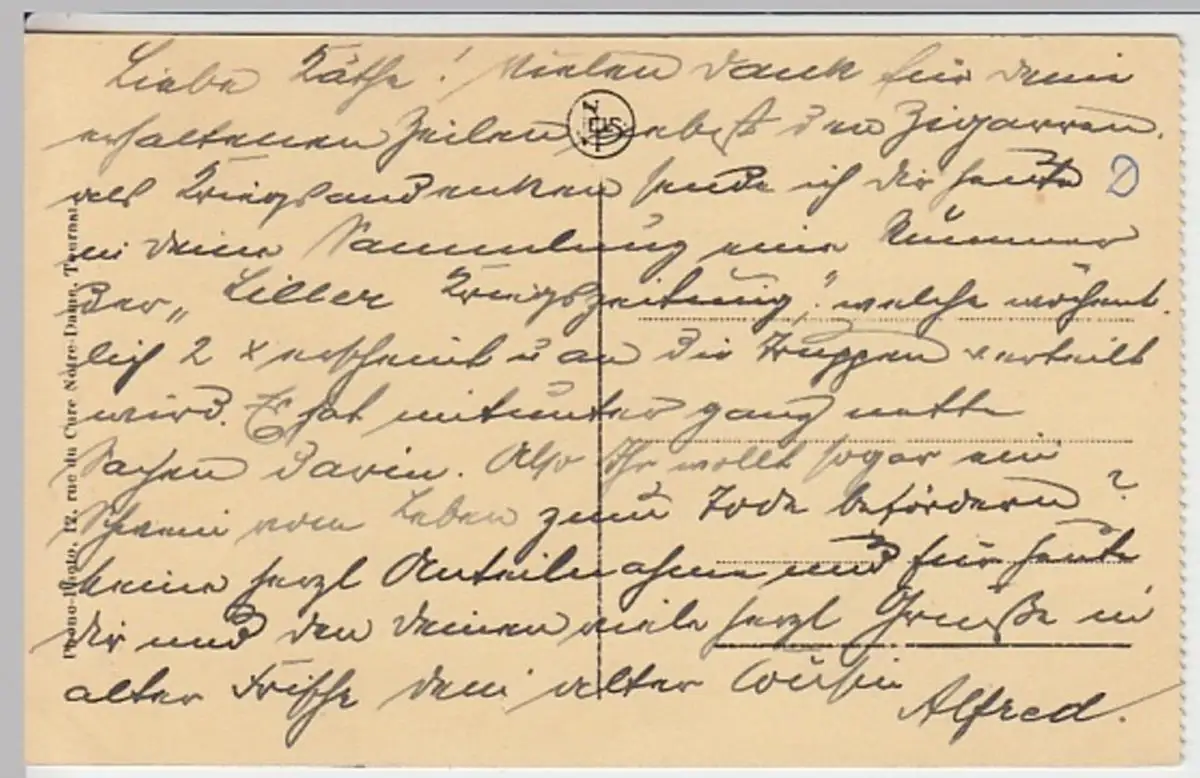 Liebe Käthe! Vielen Dank für deine
erhaltenen Zeilen nebst den Zigarren.
als Kriegsandenken sende ich dir heute
in deine Sammlung eine Nummer
der „Liller Kriegszeitung", welche wöchent
lich 2 x erscheint u an die Truppen verteilt
wird. Es hat mitunter ganz nette
Sachen darin. Also Ihr wollt sogar ein
Schwein vom Leben zum Tode befördern?
meine herzl Anteilnahme und für heute
dir und den deinen viele herzl Grüße in
alter Frische dein alter Cousin
Alfred.
D
Phono-Photo, 12, rue du Curé Notre-Dame, Tournai